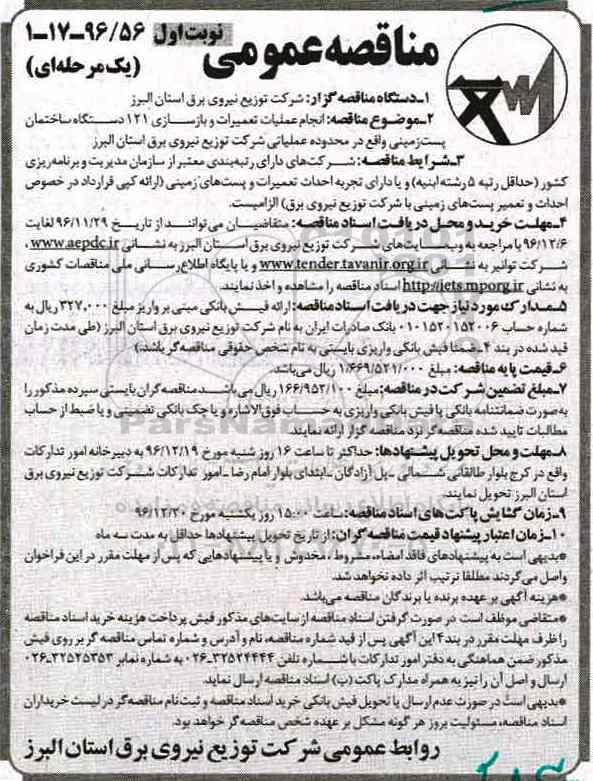 مناقصه عمومی
نوبت اول ۹۶/۵۶-۱۷-۱
(یک مرحله‌ای)
۱ـ دستگاه مناقصه گزار: شرکت توزیع نیروی برق استان البرز
۲ـ موضوع مناقصه: انجام عملیات تعمیرات و بازسازی ۱۲۱ دستگاه ساختمان
پست زمینی واقع در محدوده عملیاتی شرکت توزیع نیروی برق استان البرز
۳ـ شرایط مناقصه: شرکت‌های دارای رتبه‌بندی معتبر از سازمان مدیریت و برنامه‌ریزی
کشور (حداقل رتبه ۵ رشته ابنیه) و یا دارای تجربه احداث تعمیرات و پست‌های زمینی (ارائه کپی قرارداد در خصوص
احداث و تعمیر پست‌های زمینی با شرکت توزیع نیروی برق) الزامیست.
۴ـ مهلت خرید و محل دریافت اسناد مناقصه: متقاضیان می‌توانند از تاریخ ۹۶/۱۱/۲۹ لغایت
۹۶/۱۲/۶ با مراجعه به وب سایت‌های شرکت توزیع نیروی برق استان البرز به نشانی www.aepdc.ir ،
شرکت توانیر به نشانی www.tender.tavanir.org.ir و یا پایگاه اطلاع‌رسانی ملی مناقصات کشوری
به نشانی http://iets.mporg.ir اسناد مناقصه را مشاهده و اخذ نمایند.
۵ـ مدارک مورد نیاز جهت دریافت اسناد مناقصه: ارائه فیش بانکی مبنی بر واریز مبلغ ۳۲۷,۰۰۰ ریال به
شماره حساب ۰۱۰۱۵۲۰۱۵۲۰۰۶ بانک صادرات ایران به نام شرکت توزیع نیروی برق استان البرز (طی مدت زمان
قید شده در بند ۴ـ ضمنا فیش بانکی واریزی بایستی به نام شخص حقوقی مناقصه‌گر باشد.)
۶ـ قیمت پایه مناقصه: مبلغ ۱/۶۶۹/۵۲۱/۰۰۰ ریال می‌باشد.
۷ـ مبلغ تضمین شرکت در مناقصه: مبلغ ۱۶۶/۹۵۲/۱۰۰ ریال می‌باشد مناقصه گران بایستی سپرده مذکور را
به صورت ضمانتنامه بانکی یا فیش بانکی واریزی به حساب فوق‌الاشاره و یا چک بانکی تضمینی و یا ضبط از حساب
مطالبات تایید شده مناقصه‌گر نزد مناقصه گزار ارائه نمایند.
۸ـ مهلت و محل تحویل پیشنهادها: حداکثر تا ساعت ۱۶ روز شنبه مورخ ۹۶/۱۲/۱۹ به دبیرخانه امور تدارکات
واقع در کرج بلوار طالقانی شمالی ـ پل آزادگان ـ ابتدای بلوار امام رضا ـ امور تدارکات شرکت توزیع نیروی برق
استان البرز تحویل نمایند.
۹ـ زمان گشایش پاکت‌های اسناد مناقصه: ساعت ۱۵:۰۰ روز یکشنبه مورخ ۹۶/۱۲/۲۰
۱۰ـ زمان اعتبار پیشنهاد قیمت مناقصه گران: از تاریخ تحویل پیشنهادها حداقل به مدت سه ماه
*بدیهی است به پیشنهادهای فاقد امضاء، مشروط، مخدوش و یا پیشنهادهایی که پس از مهلت مقرر در این فراخوان
واصل می‌گردند مطلقا ترتیب اثر داده نخواهد شد.
*هزینه آگهی بر عهده برنده یا برندگان مناقصه می‌باشد.
*متقاضی موظف است در صورت گرفتن اسناد مناقصه از سایت‌های مذکور فیش پرداخت هزینه خرید اسناد مناقصه
را ظرف مهلت مقرر در بند ۴ این آگهی پس از قید شماره مناقصه، نام و آدرس و شماره تماس مناقصه گر بر روی فیش
مذکور ضمن هماهنگی به دفتر امور تدارکات با شماره تلفن ۳۲۵۲۴۴۴۴-۰۲۶ به شماره نمابر ۳۲۵۲۵۳۵۳-۰۲۶
ارسال و اصل آن را نیز به همراه مدارک پاکت (ب) اسناد مناقصه ارسال نماید.
*بدیهی است در صورت عدم ارسال یا تحویل فیش بانکی خرید اسناد مناقصه و ثبت نام مناقصه‌گر در لیست خریداران
اسناد مناقصه، مسئولیت بروز هر گونه مشکل بر عهده شخص مناقصه‌گر خواهد بود.
روابط عمومی شرکت توزیع نیروی برق استان البرز